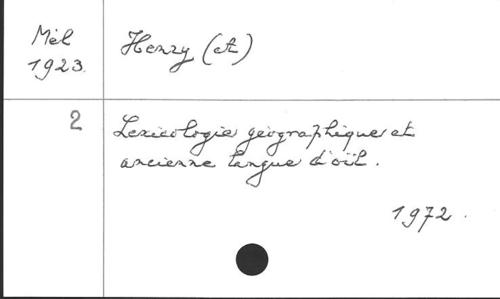 Mél
1923.
Henry (A)
2
Lexicologie géographique et
ancienne langue d'oïl.
1972.